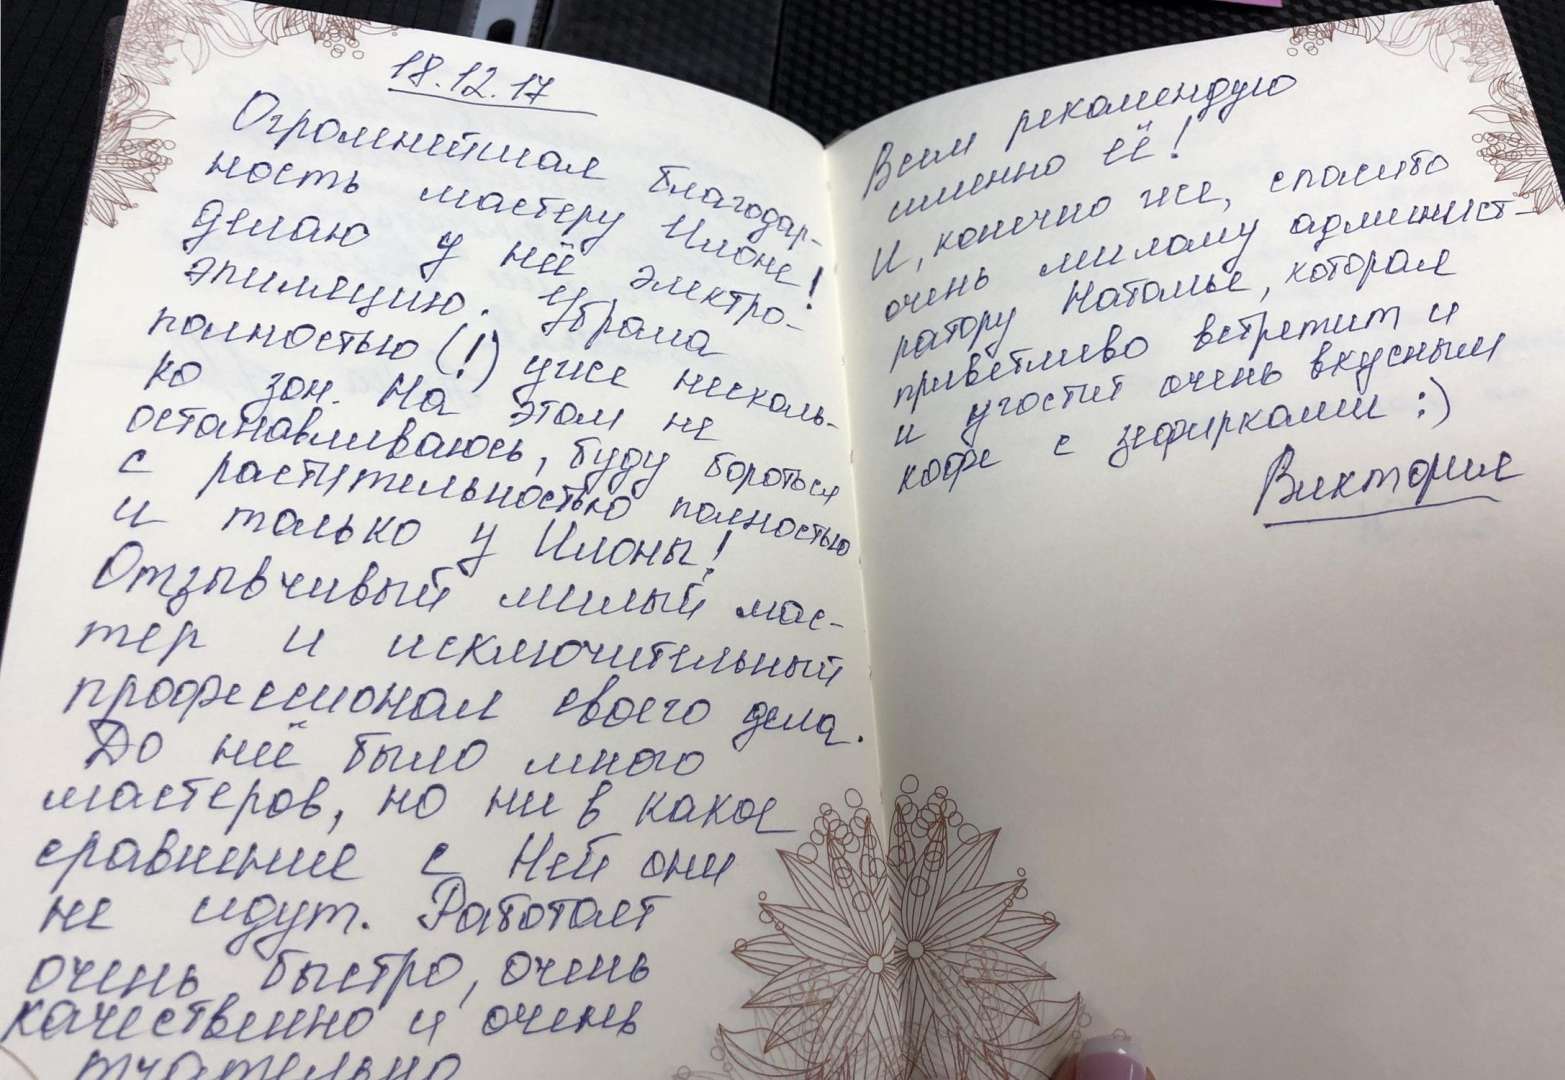 18.12.17
Огромнейшая благодар-
ность мастеру Илоне!
Делаю у неё электро-
эпиляцию. Убрала
полностью (!) уже несколь-
ко зон. На этом не
останавливаюсь, буду бороться
с растительностью полностью
и только у Илоны!
Отзывчивый милый мас-
тер и исключительный
профессионал своего дела.
До неё было много
мастеров, но ни в какое
сравнение с Ней они
не идут. Работает
очень быстро, очень
качественно и очень
тщательно
Всем рекомендую
именно её!
И, конечно же, спасибо
очень милому админист-
ратору Наталье, которая
приветливо встретит и
и угостит очень вкусным
кофе с зефирками :)
Виктория